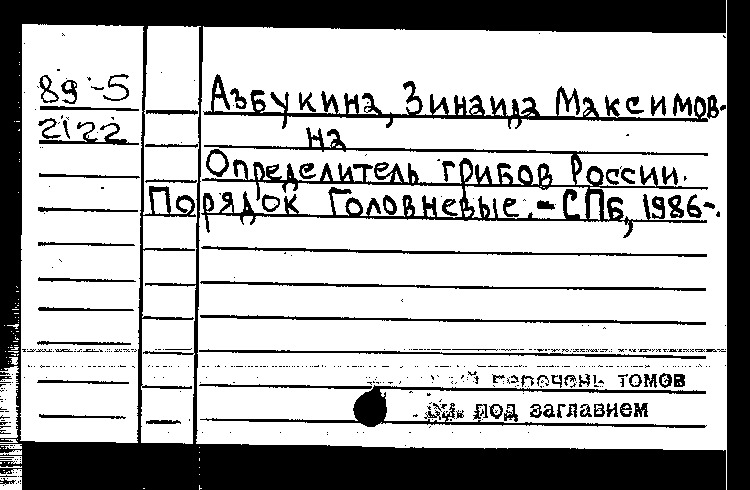 89-5
2122
Азбукина, Зинаида Максимов-
на
Определитель грибов России.
Порядок Головневые.-СПб, 1986-.
перечень томов
см. под заглавием